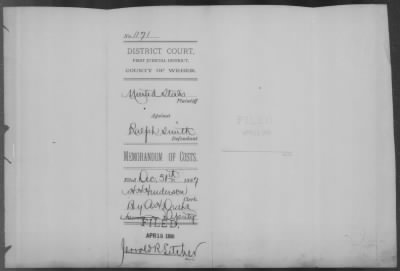 No. 1171
DISTRICT COURT,
FIRST JUDICIAL DISTRICT,
COUNTY OF WEBER.
United States
Plaintiff
Against
Ralph Smith
Defendant
MEMORANDUM OF COSTS.
Filed Dec. 31st 1887
H. H. Henderson
Clerk.
By A. H.
Deputy
FILED,
APR 15
FILED